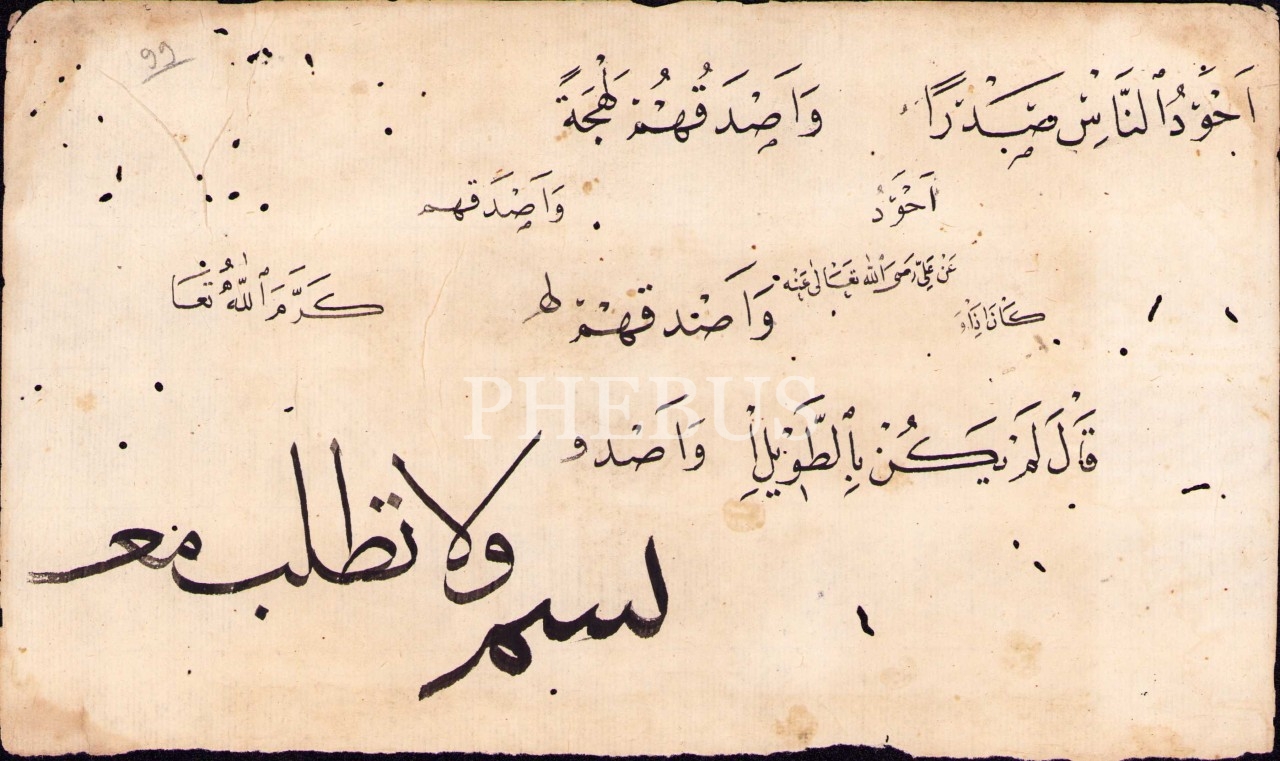 ٩٩
اَجْوَدُ ٱلنَّاسِ صَدْرًا وَاَصْدَقُهُمْ لَهْجَةً
اَجْوَدُ وَاَصْدَقهم
عَنْ عَلِيٍّ رَضِىَ ٱللهُ تَعَالٰى عَنْه
كَانَ اِذَا وَ وَاَصْدقهُمْ لھ كَرَّمَ ٱللّٰهُ تَعَا
قَالَ لَمْ يَكُنْ بِٱلطَّوِيْلِ وَاَصْدو
ولا تطلب مع
لسم
PHEBUS